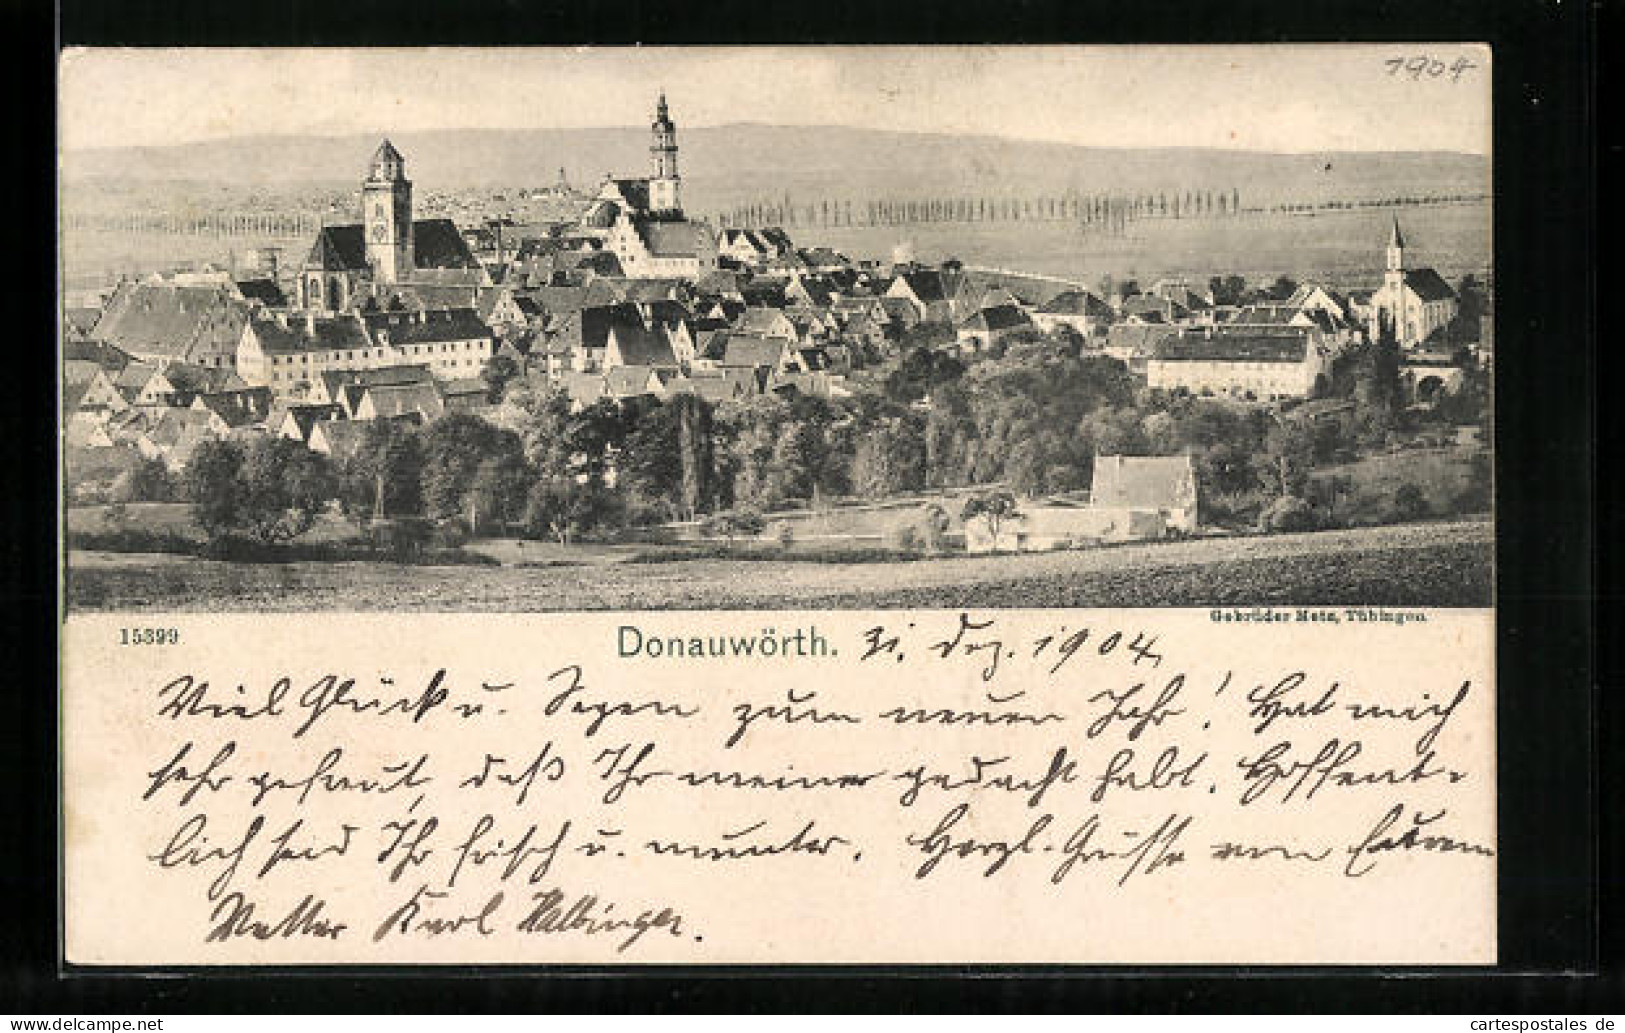 1904
15399
Gebrüder Metz, Tübingen
Donauwörth. 31. Dez. 1904
Viel Glück u. Segen zum neuen Jahr! Hat mich
sehr gefreut, daß Ihr meiner gedacht habt. Hoffent-
lich seid Ihr frisch u. munter. Herzl. Grüsse von Eurem
Vetter Karl Halbinger.
www.cartespostales.de